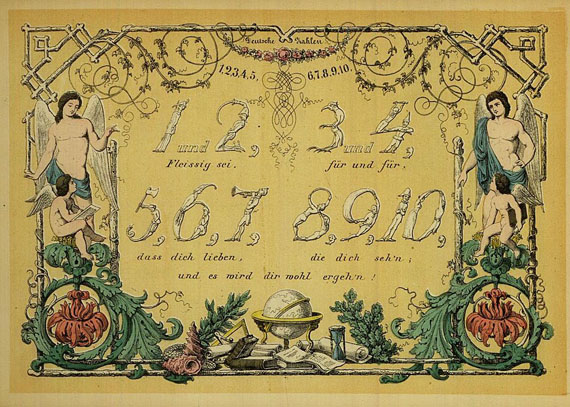 Deutsche Zahlen
1.2.3.4.5. 6.7.8.9.10.
1 und 2, 3 und 4,
Fleissig sei. für und für,
5, 6, 7, 8, 9, 10,
dass dich lieben, die dich seh'n;
und es wird dir wohl ergeh'n!